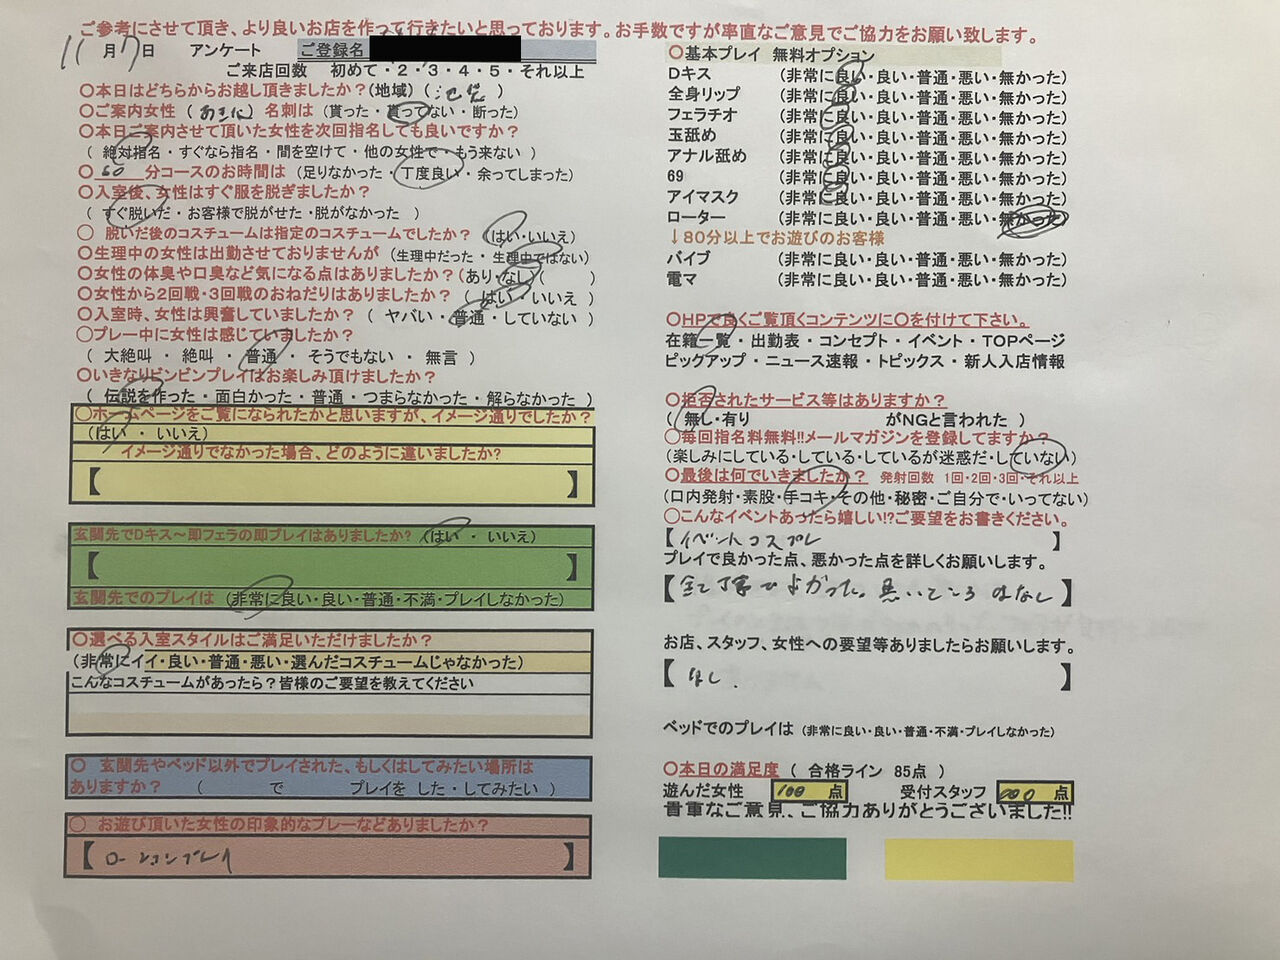 ご参考にさせて頂き、より良いお店を作って行きたいと思っております。お手数ですが率直なご意見でご協力をお願い致します。
11月7日 アンケート ご登録名
ご来店回数 初めて・2・3・4・5・それ以上
〇本日はどちらからお越し頂きましたか?(地域) ( )
〇ご案内女性 ( ) 名刺は (貰った・貰ってない・断った)
〇本日ご案内させて頂いた女性を次回指名しても良いですか?
( 絶対指名・すぐなら指名・間を空けて・他の女性で・もう来ない )
〇 60 分コースのお時間は (足りなかった・丁度良い・余ってしまった)
〇入室後、女性はすぐ服を脱ぎましたか?
( すぐ脱いだ・お客様で脱がせた・脱がなかった )
〇 脱いだ後のコスチュームは指定のコスチュームでしたか? (はい・いいえ)
〇生理中の女性は出勤させておりませんが (生理中だった・生理中ではない)
〇女性の体臭や口臭など気になる点はありましたか?(あり・なし ( )
〇女性から2回戦・3回戦のおねだりはありましたか? ( はい・いいえ )
〇入室時、女性は興奮していましたか? ( ヤバい・普通・していない )
〇プレー中に女性は感じていましたか?
( 大絶叫・絶叫・普通・そうでもない・無言 )
〇いきなりビンビンプレイはお楽しみ頂けましたか?
( 伝説を作った・面白かった・普通・つまらなかった・解らなかった )
〇ホームページをご覧になられたかと思いますが、イメージ通りでしたか?
(はい ・ いいえ)
イメージ通りでなかった場合、どのように違いましたか?
【 】
玄関先でDキス～即フェラの即プレイはありましたか? (はい ・ いいえ)
【 】
玄関先でのプレイは (非常に良い・良い・普通・不満・プレイしなかった)
〇選べる入室スタイルはご満足いただけましたか?
(非常にイイ・良い・普通・悪い・選んだコスチュームじゃなかった)
こんなコスチュームがあったら?皆様のご要望を教えてください
〇 玄関先やベッド以外でプレイされた、もしくはしてみたい場所は
ありますか? ( で プレイを した・してみたい )
〇 お遊び頂いた女性の印象的なプレーなどありましたか?
【 ローションプレイ 】
〇基本プレイ 無料オプション
Dキス (非常に良い・良い・普通・悪い・無かった)
全身リップ (非常に良い・良い・普通・悪い・無かった)
フェラチオ (非常に良い・良い・普通・悪い・無かった)
玉舐め (非常に良い・良い・普通・悪い・無かった)
アナル舐め (非常に良い・良い・普通・悪い・無かった)
69 (非常に良い・良い・普通・悪い・無かった)
アイマスク (非常に良い・良い・普通・悪い・無かった)
ローター (非常に良い・良い・普通・悪い・無かった)
↓80分以上でお遊びのお客様
バイブ (非常に良い・良い・普通・悪い・無かった)
電マ (非常に良い・良い・普通・悪い・無かった)
〇HPで良くご覧頂くコンテンツに〇を付けて下さい。
在籍一覧・出勤表・コンセプト・イベント・TOPページ
ピックアップ・ニュース速報・トピックス・新人入店情報
〇拒否されたサービス等はありますか?
( 無し・有り がNGと言われた )
〇毎回指名料無料!!メールマガジンを登録してますか?
(楽しみにしている・している・しているが迷惑だ・していない)
〇最後は何でいきましたか? 発射回数 1回・2回・3回・それ以上
(口内発射・素股・手コキ・その他・秘密・ご自分で・いってない)
〇こんなイベントあったら嬉しい!?ご要望をお書きください。
【イベントコスプレ 】
プレイで良かった点、悪かった点を詳しくお願いします。
【全て丁寧でよかった。悪いところはなし】
お店、スタッフ、女性への要望等ありましたらお願いします。
【 なし. 】
ベッドでのプレイは (非常に良い・良い・普通・不満・プレイしなかった)
〇本日の満足度 ( 合格ライン 85点 )
遊んだ女性 100 点 受付スタッフ 点
貴重なご意見、ご協力ありがとうございました!!